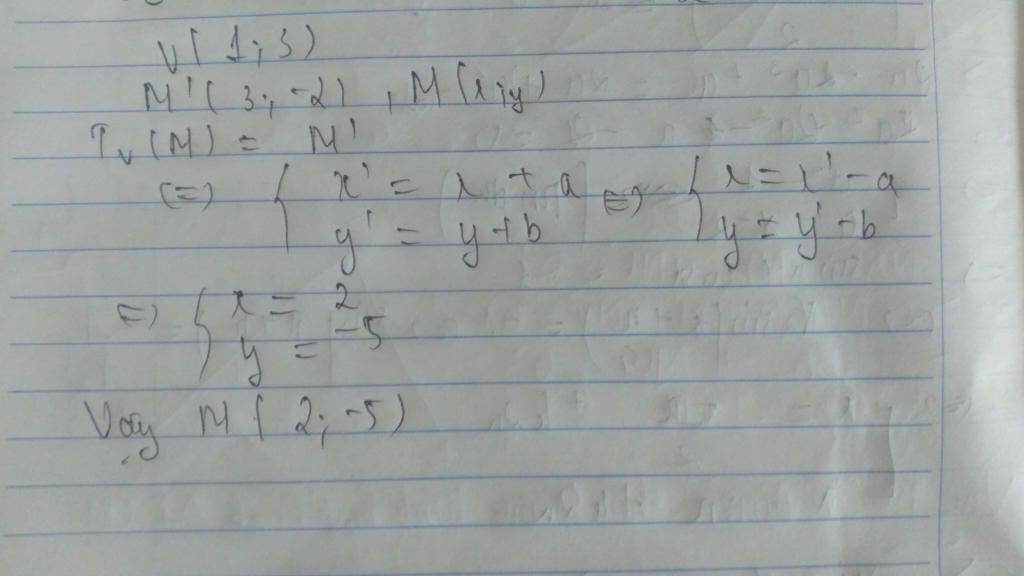 V( 1; 3)
M'( 3; -2) , M(x;y)
Tv (M) = M'
(=) { x' = x + a (=) { x = x' - a
y' = y + b y = y' - b
=) { x = 2
y = -5
Vậy M ( 2; -5)